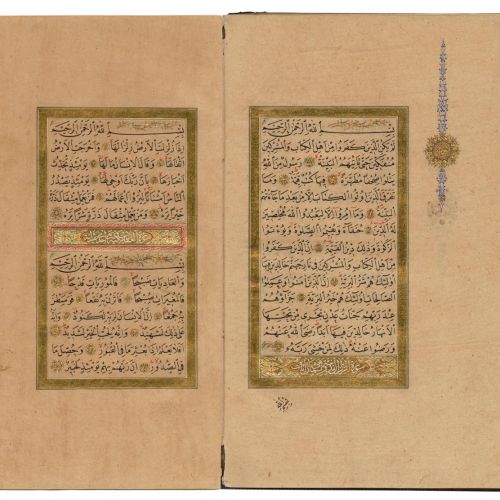 بِسْمِ اللهِ الرَّحْمٰنِ الرَّحِيمِ
لَمْ يَكُنِ الَّذِينَ كَفَرُوا مِنْ اَهْلِ الْكِتَابِ وَالْمُشْرِكِينَ
مُنْفَكِّينَ حَتّٰى تَأْتِيَهُمُ الْبَيِّنَةُ رَسُولٌ مِنَ اللهِ
يَتْلُوا صُحُفًا مُطَهَّرَةً فِيهَا كُتُبٌ قَيِّمَةٌ وَمَا
تَفَرَّقَ الَّذِينَ اُوتُوا الْكِتَابَ اِلَّا مِنْ بَعْدِ مَا جَاءَتْهُمُ
الْبَيِّنَةُ وَمَا اُمِرُوا اِلَّا لِيَعْبُدُوا اللهَ مُخْلِصِينَ
لَهُ الدِّينَ حُنَفَاءَ وَيُقِيمُوا الصَّلٰوةَ وَيُؤْتُوا
الزَّكٰوةَ وَذٰلِكَ دِينُ الْقَيِّمَةِ اِنَّ الَّذِينَ كَفَرُوا
مِنْ اَهْلِ الْكِتَابِ وَالْمُشْرِكِينَ فِي نَارِ جَهَنَّمَ خَالِدِينَ فِيهَا
اُولٰئِكَ هُمْ شَرُّ الْبَرِيَّةِ اِنَّ الَّذِينَ اٰمَنُوا وَعَمِلُوا
الصَّالِحَاتِ اُولٰئِكَ هُمْ خَيْرُ الْبَرِيَّةِ جَزَاؤُهُمْ
عِنْدَ رَبِّهِمْ جَنَّاتُ عَدْنٍ تَجْرِي مِنْ تَحْتِهَا
الْاَنْهَارُ خَالِدِينَ فِيهَا اَبَدًا رَضِيَ اللهُ عَنْهُمْ
وَرَضُوا عَنْهُ ذٰلِكَ لِمَنْ خَشِيَ رَبَّهُ
بِسْمِ اللهِ الرَّحْمٰنِ الرَّحِيمِ
اِذَا زُلْزِلَتِ الْاَرْضُ زِلْزَالَهَا وَاَخْرَجَتِ الْاَرْضُ
اَثْقَالَهَا وَقَالَ الْاِنْسَانُ مَا لَهَا يَوْمَئِذٍ تُحَدِّثُ
اَخْبَارَهَا بِاَنَّ رَبَّكَ اَوْحٰى لَهَا يَوْمَئِذٍ يَصْدُرُ
النَّاسُ اَشْتَاتًا لِيُرَوْا اَعْمَالَهُمْ فَمَنْ يَعْمَلْ مِثْقَالَ ذَرَّةٍ
خَيْرًا يَرَهُ وَمَنْ يَعْمَلْ مِثْقَالَ ذَرَّةٍ شَرًّا يَرَهُ
بِسْمِ اللهِ الرَّحْمٰنِ الرَّحِيمِ
وَالْعَادِيَاتِ ضَبْحًا فَالْمُورِيَاتِ قَدْحًا
فَالْمُغِيرَاتِ صُبْحًا فَاَثَرْنَ بِهِ نَقْعًا فَوَسَطْنَ
بِهِ جَمْعًا اِنَّ الْاِنْسَانَ لِرَبِّهِ لَكَنُودٌ وَاِنَّهُ
عَلٰى ذٰلِكَ لَشَهِيدٌ وَاِنَّهُ لِحُبِّ الْخَيْرِ لَشَدِيدٌ
اَفَلَا يَعْلَمُ اِذَا بُعْثِرَ مَا فِي الْقُبُورِ وَحُصِّلَ مَا
فِي الصُّدُورِ اِنَّ رَبَّهُمْ بِهِمْ يَوْمَئِذٍ لَخَبِيرٌ